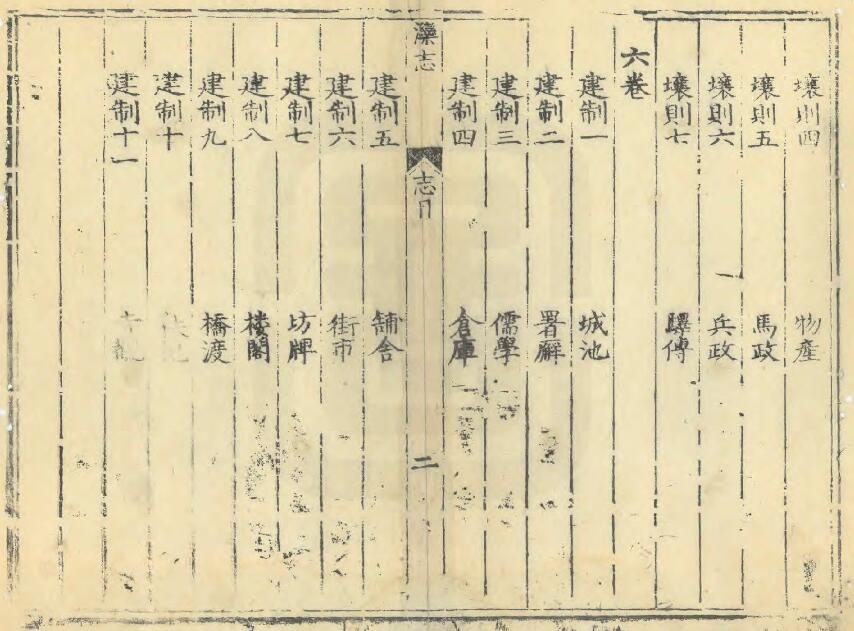 壤則四 物產
壤則五 馬政
壤則六 兵政
壤則七 驛傳
六卷
建制一 城池
建制二 署廨
建制三 儒學
建制四 倉庫
灤志 志目 二
建制五 舖舍
建制六 街市
建制七 坊牌
建制八 楼閣
建制九 橋渡
建制十
建制十一